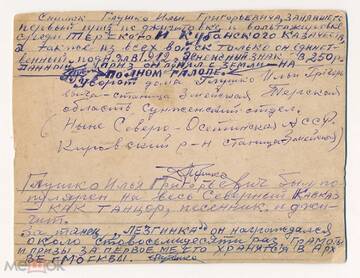 Снимок Глушко Ильи Григорьевича, занявшего
первый приз по джигитовке и вольтижировке
среди Терского и Кубанского казачества
а также из всех войск только он единст-
венный поднял в 1912 значок в 250 р.
данный царем с земли на
полном галопе.
Глушко Ильи Григорь-
евича станица Змейская Терская
область Сунженский отдел.
(Ныне Северо-Осетинская АССР.
Кировский р-н станица Змейская)
Глушко
Глушко Илья Григорьевич был по-
пулярен на весь Северный Кавказ
как танцор, песенник и джи-
гит.
За танец "Лезгинка" он награждался
около стовосемидесяти раз. Грамоты
и призы за первое место хранится в арх
ве г Москвы. Глушко
Meshok.net